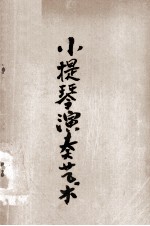 小提琴演奏艺术